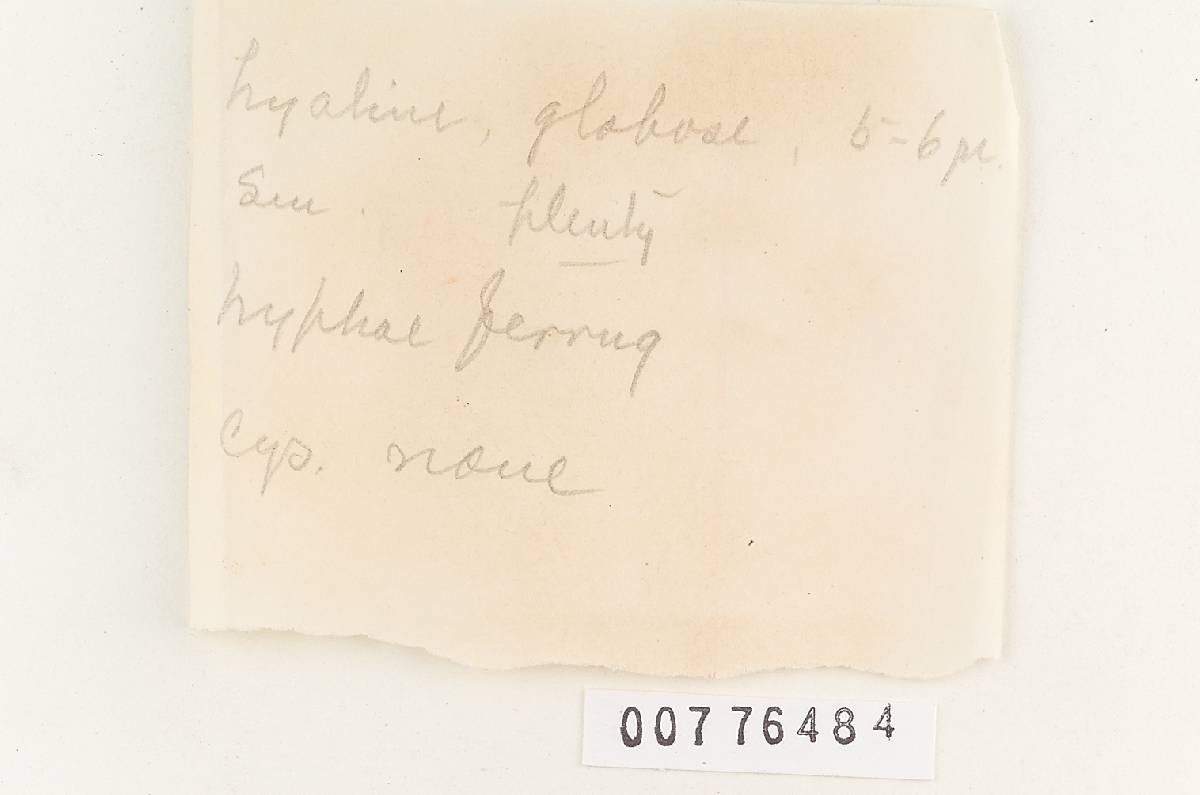 hyaline, globose, 5-6 µ.
Sm. plenty
hyphae ferrug
Cys. none
00776484